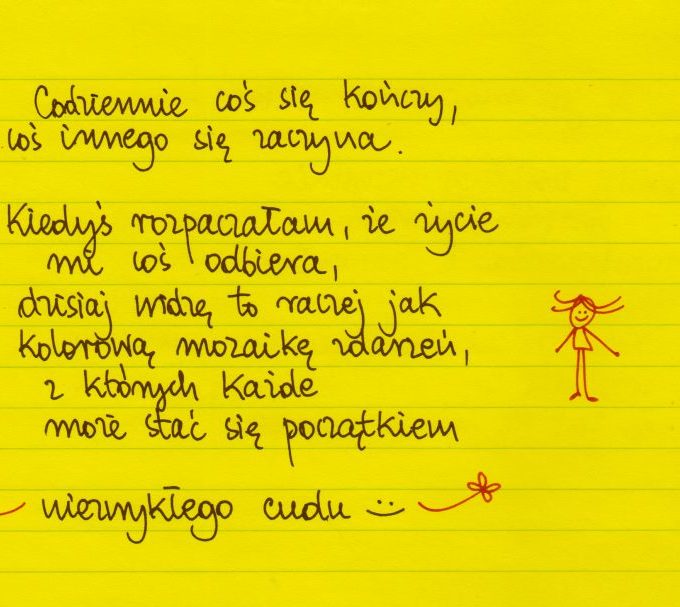 Codziennie coś się kończy,
coś innego się zaczyna.
Kiedyś rozpaczałam, że życie
mi coś odbiera,
dzisiaj widzę to raczej jak
kolorową mozaikę zdarzeń,
z których każde
może stać się początkiem
niezwykłego cudu :)